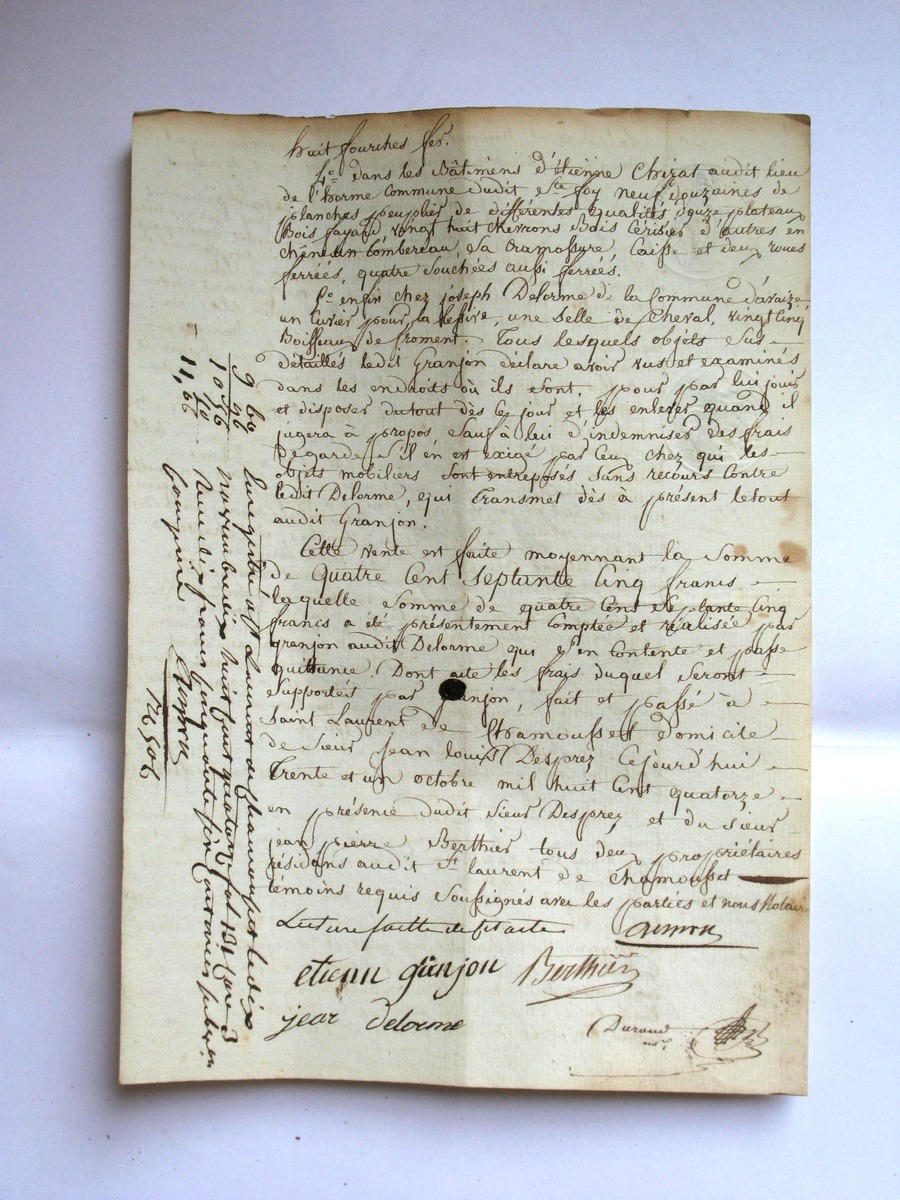 huit fourches fer.
4.° dans les Bâtimens d'étienne Chizat audit lieu
de l'horme Commune dudit Ste foy neuf douzaines de
planches peuplier de différentes qualités, douze plateaux
Bois fayard vingt huit chevrons Bois Cérisier d'autres en
chêne un tombereau, sa Caisse et deux roues
ferréés, quatre aussi ferréés.
5.° enfin chez joseph Delorme de la Commune d'avaize,
un Cuvier pour la lessive, une Selle de Cheval, vingt Cinq
Boisseaux de froment. Tous lesquels objets Sus-
détaillés ledit Granjon déclare avoir vus et examinés
dans les endroits où ils sont. pour par lui jouir
et disposer du tout dès ce jour et les enlever quand il
jugera à propos Sauf à lui d'indemniser des frais
de garde s'il en est exigé par Ceux chez qui les
objets mobiliers sont entreposés Sans recours Contre
ledit Delorme, qui Transmet dès à présent le tout
audit Granjon.
Cette vente est faite moyennant la Somme
De Quatre Cent Septante Cinq francs
laquelle Somme de quatre Cent Septante Cinq
francs a été présentement Comptée et réalisée par
granjon audit Delorme qui s'en Contente et passe
quittance. Dont acte les frais duquel Seront
Supportés par granjon, fait et passé à
Saint Laurent de Chamousset domicile
de Sieur Jean Louis Desprez Cejourd'hui
Trente et un octobre mil huit Cent quatorze
en présence dudit Sieur Desprez, et du Sieur
jean pierre Berthier tous deux propriétaires
résidans audit St laurent de Chamousset
témoins requis Soussignés avec les parties et nous Notaire
Lecture faitte
etienn granjon Berthier
jean delorme
Durand
nre
Enregistré à St Laurent de chamousset le dix
novembre dix huit cent quatorze fol 131
Reçu dix francs cinquante six centimes
9 60
96
10 56
1,10
11,66